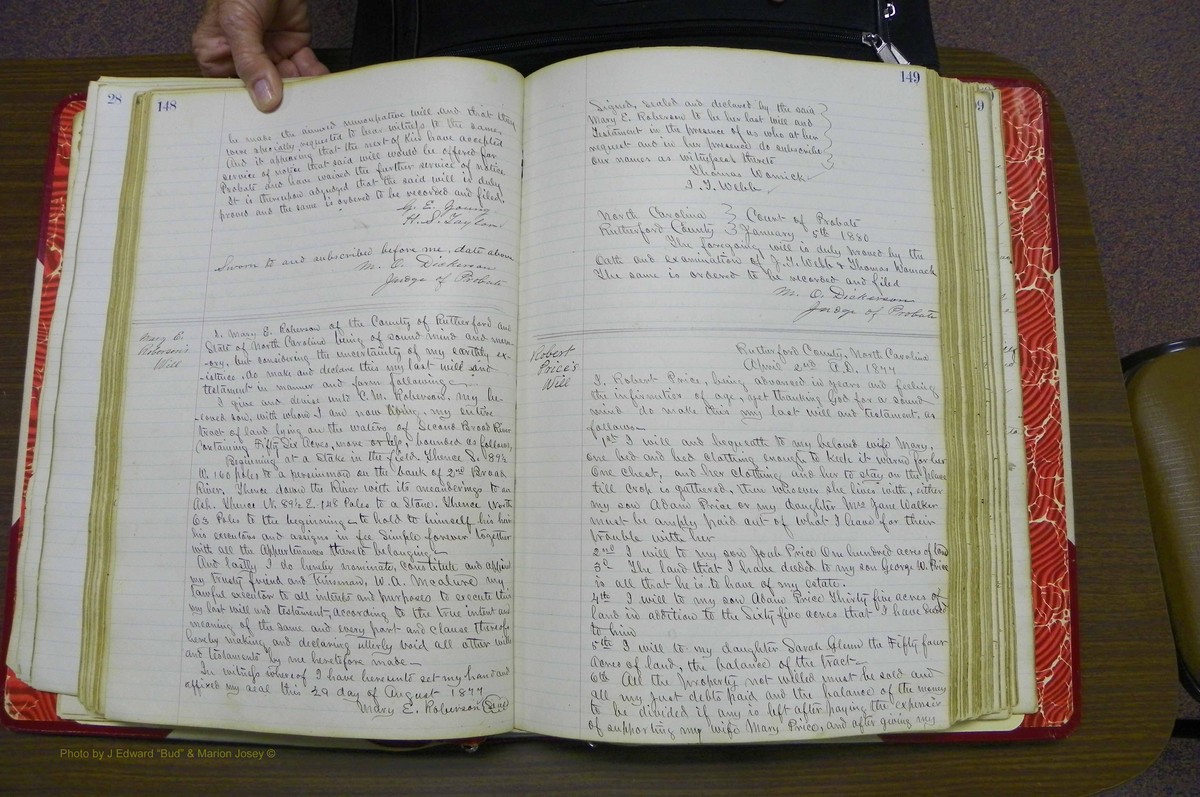 28
148
he made the annexed nuncupative will and that they
were specially requested to bear witness to the same,
And it appearing that the next of Kin have accepted
service of notice that said will would be offered for
Probate and have waived the further service of notice
It is thereupon adjudged that the said will is duly
proved and the same is ordered to be recorded and filed.
G. E. Young
H. S. Taylor
Sworn to and subscribed before me, date above
M. O. Dickerson
Judge of Probate
Mary E.
Roberson's
Will
I, Mary E. Roberson of the County of Rutherford and
State of North Carolina being of sound mind and mem-
-ory, but considering the uncertainty of my earthly ex-
-istence, do make and declare this my last will and
testament in manner and form following—
I give and devise unto C. M. Roberson, my be-
-loved son, with whom I am now living, my entire
tract of land lying on the waters of Second Broad River
Containing Fifty Six Acres, more or less, bounded as follows,
Beginning at a Stake in the field Thence S. 89½
W. 160 poles to a persimmon on the bank of 2nd Broad
River, Thence down the River with its meanderings to an
Ash. Thence N. 89½ E. 128 Poles to a Stone. Thence North
63 Poles to the beginning— to hold to himself his heirs
his executors and assigns in fee Simple forever together
with all the Appurtenances thereto belonging—
And lastly I do hereby nominate, constitute and appoint
my trusty friend and Kinsman, W. A. McClure my
lawful executor to all intents and purposes to execute this
my last will and testament, according to the true intent and
meaning of the same and every part and clause thereof
hereby making and declaring utterly void all other wills
and testaments by me heretofore made—
In witness whereof I have hereunto set my hand and
affixed my seal this 29 day of August 1877
Mary E. Roberson (Seal)
149
Signed, sealed and declared by the said
Mary E. Roberson to be her last will and
Testament in the presence of us who at her
request and in her presence do subscribe
our names as witnesses thereto
Thomas Womick
J. T. Webb
North Carolina } Court of Probate
Rutherford County } January 5th 1880
The foregoing will is duly proved by the
Oath and examination of J. T. Webb & Thomas Womack
The same is ordered to be recorded and filed
M. O. Dickerson
Judge of Probate
Robert
Price's
Will
Rutherford County, North Carolina
April 2nd A.D. 1877
I, Robert Price, being advanced in years and feeling
the infirmities of age, yet thanking God for a sound
mind do make this my last will and testament, as
follows—
1st I will and bequeath to my beloved wife Mary,
one bed and bed clothing enough to keep it warm for her
One Chest, and her clothing and her to stay on the place
till crop is gathered, then whoever she lives with, either
my son Adam Price or my daughter Mrs Jane Walker
must be amply paid out of what I leave for their
trouble with her
2nd I will to my son Joah Price One hundred acres of land
3d The land that I have deeded to my son George W. Price
is all that he is to have of my estate.
4th I will to my son Adam Price Thirty five acres of
land in addition to the Sixty five acres that I have deeded
to him
5th I will to my daughter Sarah Glenn the Fifty four
Acres of land, the balance of the tract—
6th All the property not willed must be sold and
all my just debts paid and the balance of the money
to be divided if any is left after paying the expenses
of supporting my wife Mary Price, and after giving my
Photo by J Edward "Bud" & Marion Josey ©